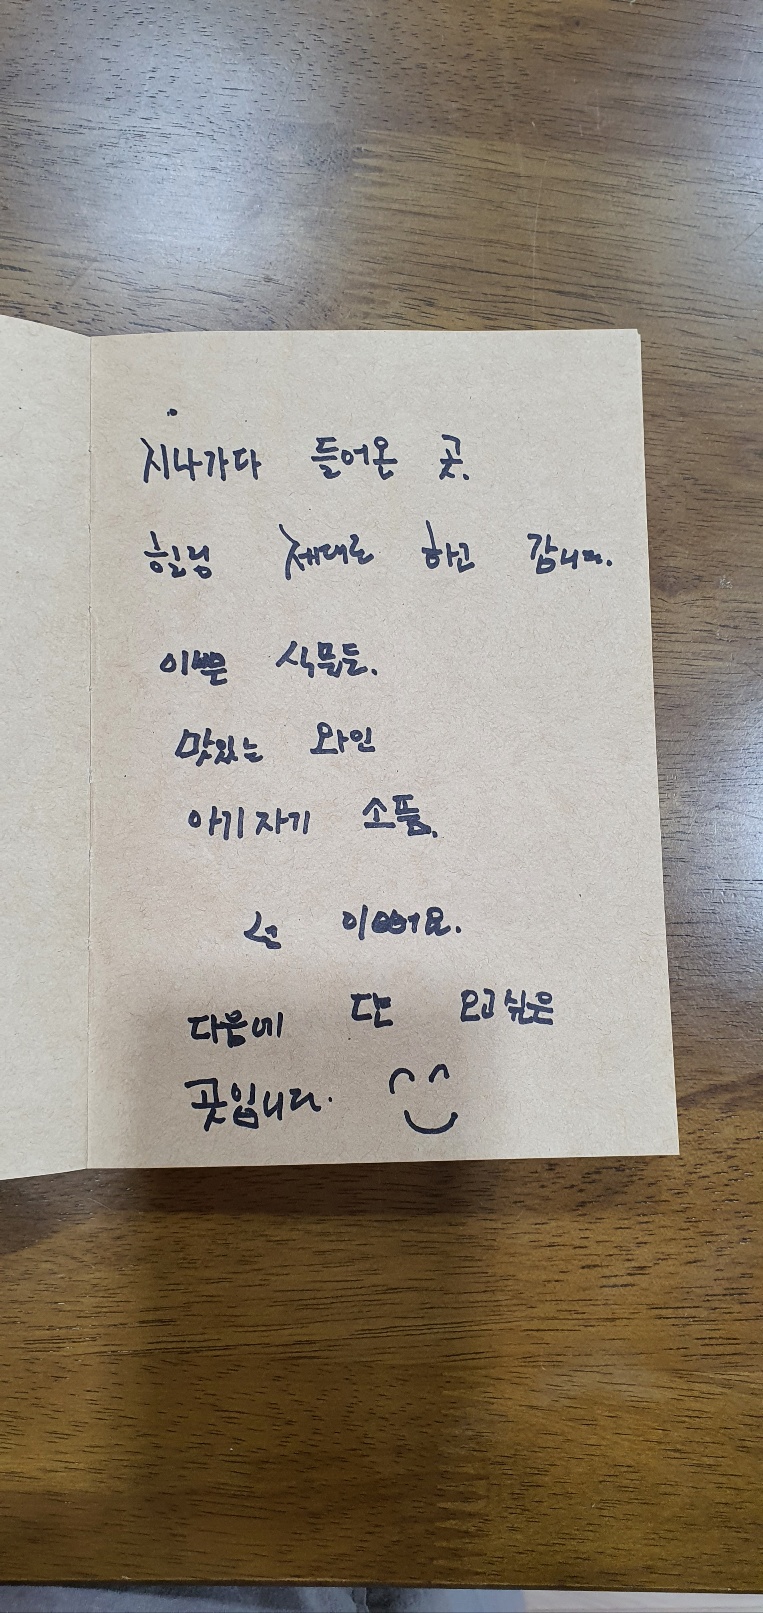 지나가다 들어온 곳.
힐링 제대로 하고 갑니다.
이쁜 식물들.
맛있는 와인
아기자기 소품.
이뻤어요.
다음에 또 오고싶은
곳입니다.